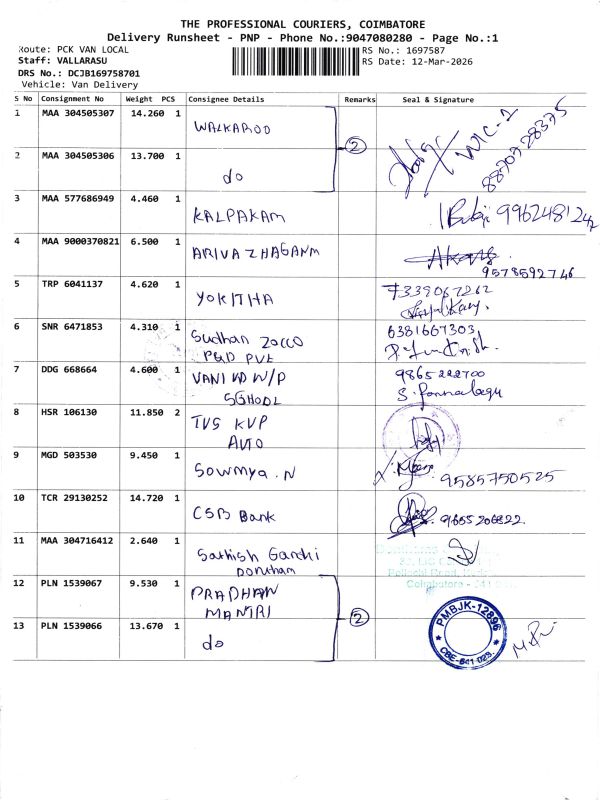 THE PROFESSIONAL COURIERS, COIMBATORE
Delivery Runsheet - PNP - Phone No.:9047080280 - Page No.:1
Route: PCK VAN LOCAL
RS No.: 1697587
Staff: VALLARASU
RS Date: 12-Mar-2026
DRS No.: DCJB169758701
Vehicle: Van Delivery
S No Consignment No Weight PCS Consignee Details Remarks Seal & Signature
1 MAA 304505307 14.260 1 WALKAROO WIC-2
8870728375
2 MAA 304505306 13.700 1 do
2
3 MAA 577686949 4.460 1 KALPAKAM 9962481242
4 MAA 9000370821 6.500 1 ARIVAZHAGANM
9578592746
5 TRP 6041137 4.620 1 YOKITHA 7339067262
6 SNR 6471853 4.310 1 Sudhan ZOCCO 6381667303
PGD PVE
7 DDG 668664 4.600 1 VANI VD W/P 9865222700
SGHOOL S. Ponnalagu
8 HSR 106130 11.850 2 TVS KVP
AUTO
9 MGD 503530 9.450 1 Sowmya .N 9585750525
10 TCR 29130252 14.720 1 CSB Bank 9655206822
11 MAA 304716412 2.640 1 Sathish Gandhi
Coimbatore - 641
12 PLN 1539067 9.530 1 PRADHAN
MANTRI
2
PMBJK-12896
CBE-641 023.
13 PLN 1539066 13.670 1 do